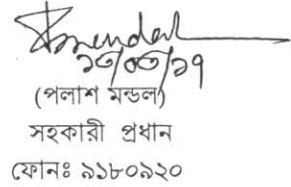 ১৩/০৩/১৭
(পলাশ মন্ডল)
সহকারী প্রধান
ফোনঃ ৯১৮০৯২০